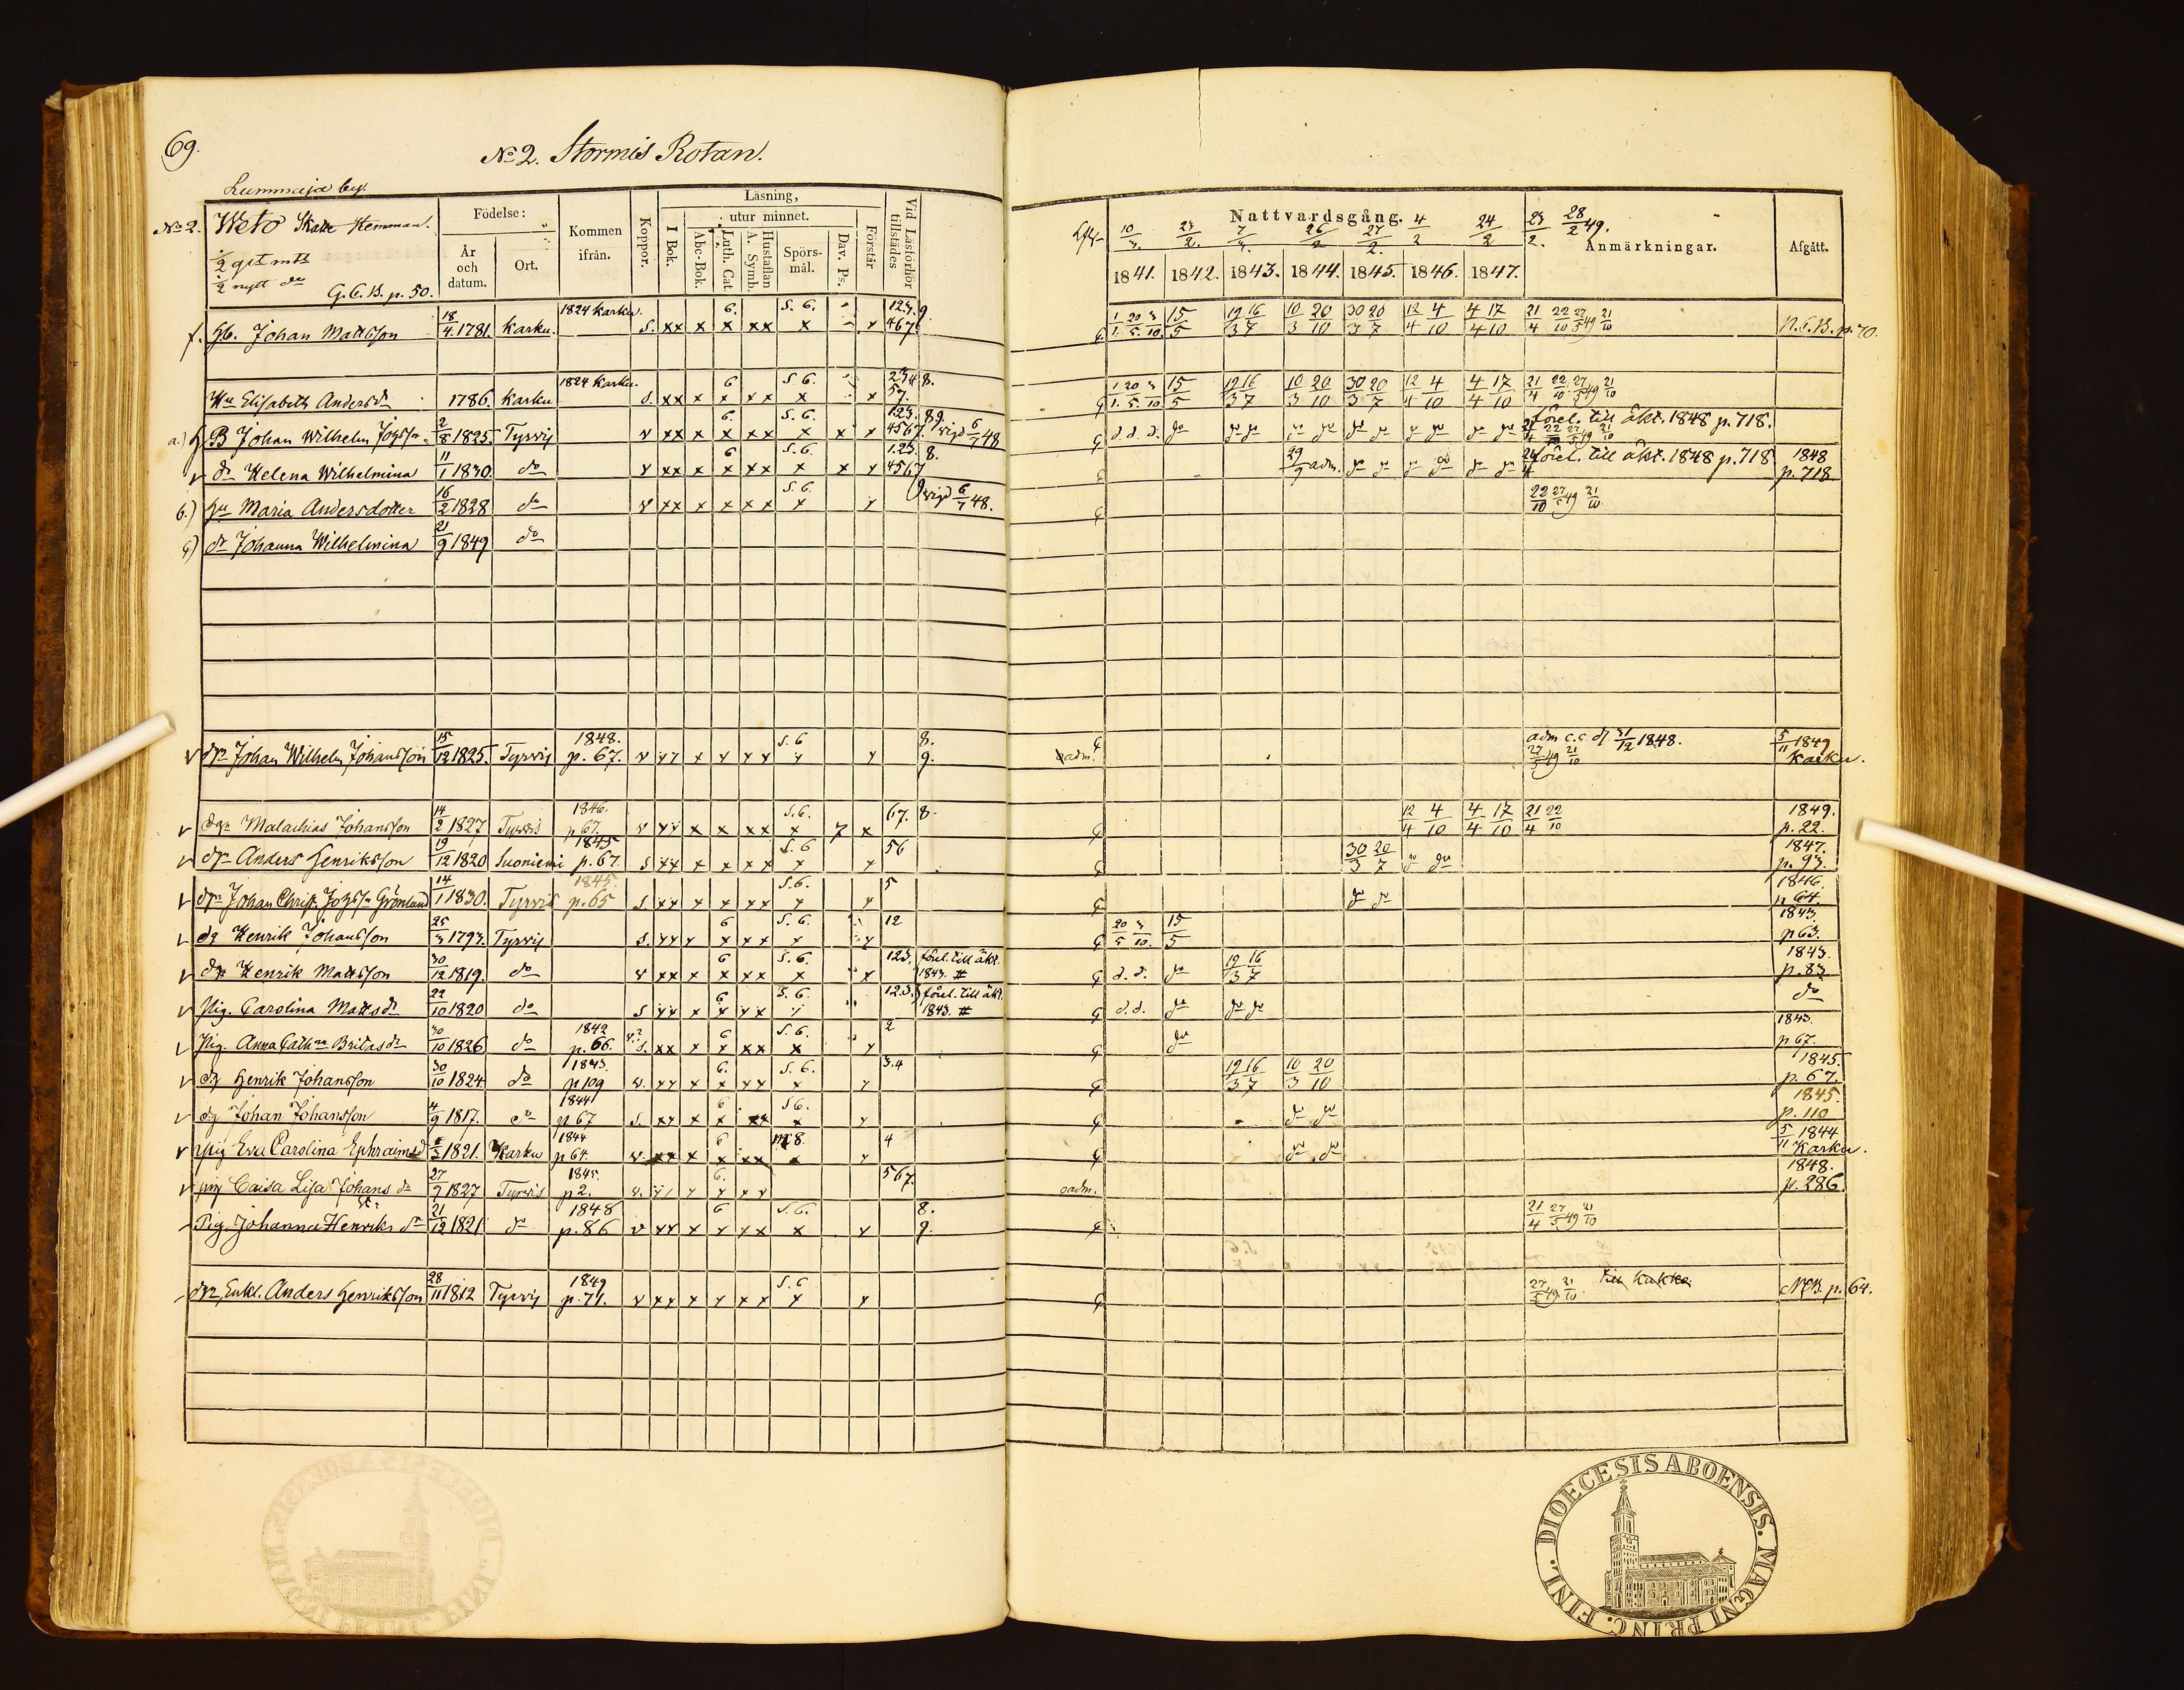 69.
No 2. Stormis Rotan.
Lummaja by.
No 2. Weto Skatte Hemman.
1/2 gl mtl
1/2 nytt do
G.C.B. p. 50.
Födelse:
År och datum.
Ort.
Kommen ifrån.
Koppor.
Läsning,
I Bok.
utur minnet.
Abc-Bok.
Luth. Cat.
A. Symb. Hustaflan
Spörsmål.
Dav. Ps.
Förstår
Vid Läsförhör tillstädes
Nattvardsgång.
10/3 23/2. 7/3. 26/2 27/2. 4/2 24/2 23/2. 28/2 49.
1841. 1842. 1843. 1844. 1845. 1846. 1847.
Anmärkningar.
Afgått.
f. Hb. Johan Mattsson 18/4. 1781. Karku. 1824 Karku. S. xx x 6. x xx S. 6. x x 123. 467. 9. 15/5 19/3 16/7 10/3 20/10 30/3 20/7 12/4 4/10 4/4 17/10 21/4 22/10 27/5 49 21/10 N.C.B. p. 70.
Hu Elisabeth Andersdr 1786. Karku 1824 Karku. S. xx x 6 x xx S. 6. x x 234 57. 8. 15/5 19/3 16/7 10/3 20/10 30/3 20/7 12/4 4/10 4/4 17/10 21/4 22/10 27/5 49 21/10
a.) B Johan Wilhelm 2/8 1825. Tyrvis v xx x 6. x xx S. 6. x x x 123. 4567. 89. vigd 6/7 48 d. d. d. do förel. till äkt. 1848 p. 718. 22/10 27/5 49 21/10
v dr Helena Wilhelmina 11/1 1830. do v xx x 6 x xx S. 6. x x x 1.23. 4567 8. 29/9 adm. förel. till äkt. 1848 p. 718 1848 p. 718
b.) Hu Maria Andersdotter 16/2 1828 do v xx x x xx S. 6. x x vigd 6/7 48. 22/10 27/5 49 21/10
c) dr Johanna Wilhelmina 21/9 1849 do
v Johan Wilhelm Johansson 15/12 1825. Tyrvis 1848. p. 67. v xx x x xx S. 6 x x 8. 9. adm. adm c.c d 31/12 1848. 27/5 49 21/10 5/11 1849 Karku.
v Malachias Johansson 14/2 1827 Tyrvis 1846. p 67. v xx x x xx S. 6. x 7 x 67. 8. 12/4 4/10 4/4 17/10 21/4 22/10 1849. p. 22.
v Anders Henriksson 19/12 1820 Suoniemi 1845 p. 67. S xx x x xx S. 6 x x 56 30/3 20/7 1847. p. 93.
v Johan Christ. Grönlund 14/1 1830. Tyrvis 1845. p. 65 S xx x x xx S. 6. x x 5 1846. p 64.
v dg Henrik Johansson 25/3 1793. Tyrvis S. xx x 6 x xx S. 6. x x 12 20/5 3/10. 15/5 1843. p 63.
v Henrik Mattsson 30/12 1819. do v xx x 6 x xx S. 6. x x 123. förel. till äkt. 1843. # d. d. do 19/3 16/7 1843. p. 83
v Pig. Carolina Mattsdr 22/10 1820 do S xx x 6 x xx S. 6. x 123. förel. till äkt. 1843. # d. d. do do do do
v Pig. Anna Cathna Britasdr 30/10 1826 do 1842 p. 66. S. xx x 6 x xx S. 6. x x 2 do 1843. p 67.
v dg Henrik Johansson 30/10 1824 do 1843. p 109 v. xx x 6. x xx S. 6. x x 3.4 19/3 16/7 10/3 20/10 1845. p. 67.
v dg Johan Johansson 4/9 1817. do 1844 p 67 S. xx x 6 x xx S6. x x do do 1845. p. 110
v Pig Eva Carolina Ephraimsd 1821. Karku 1844 p 64. v. xx x 6 x xx 8. x x 4 do do 5/11 1844 Karku.
v pig Caisa Lisa Johans dr 27/9 1827 Tyrvis 1845. p 2. v. 6. x xx 567. adm. 1848. p. 286.
Pig. Johanna Henriks dr 21/12 1821 do 1848 p. 86 v xx x 6 x xx S. 6. x x 8. 9. 21/4 27/5 49 21/10
Enkl. Anders Henriksson 28/11 1812 Tyrvis 1849 p. 71. v xx x x xx S. 6 x x 27/5 49. 21/10 till Kakko. NCB. p. 64.
DIOECESIS ABOENSIS. MAGNI PRINC. FINL.